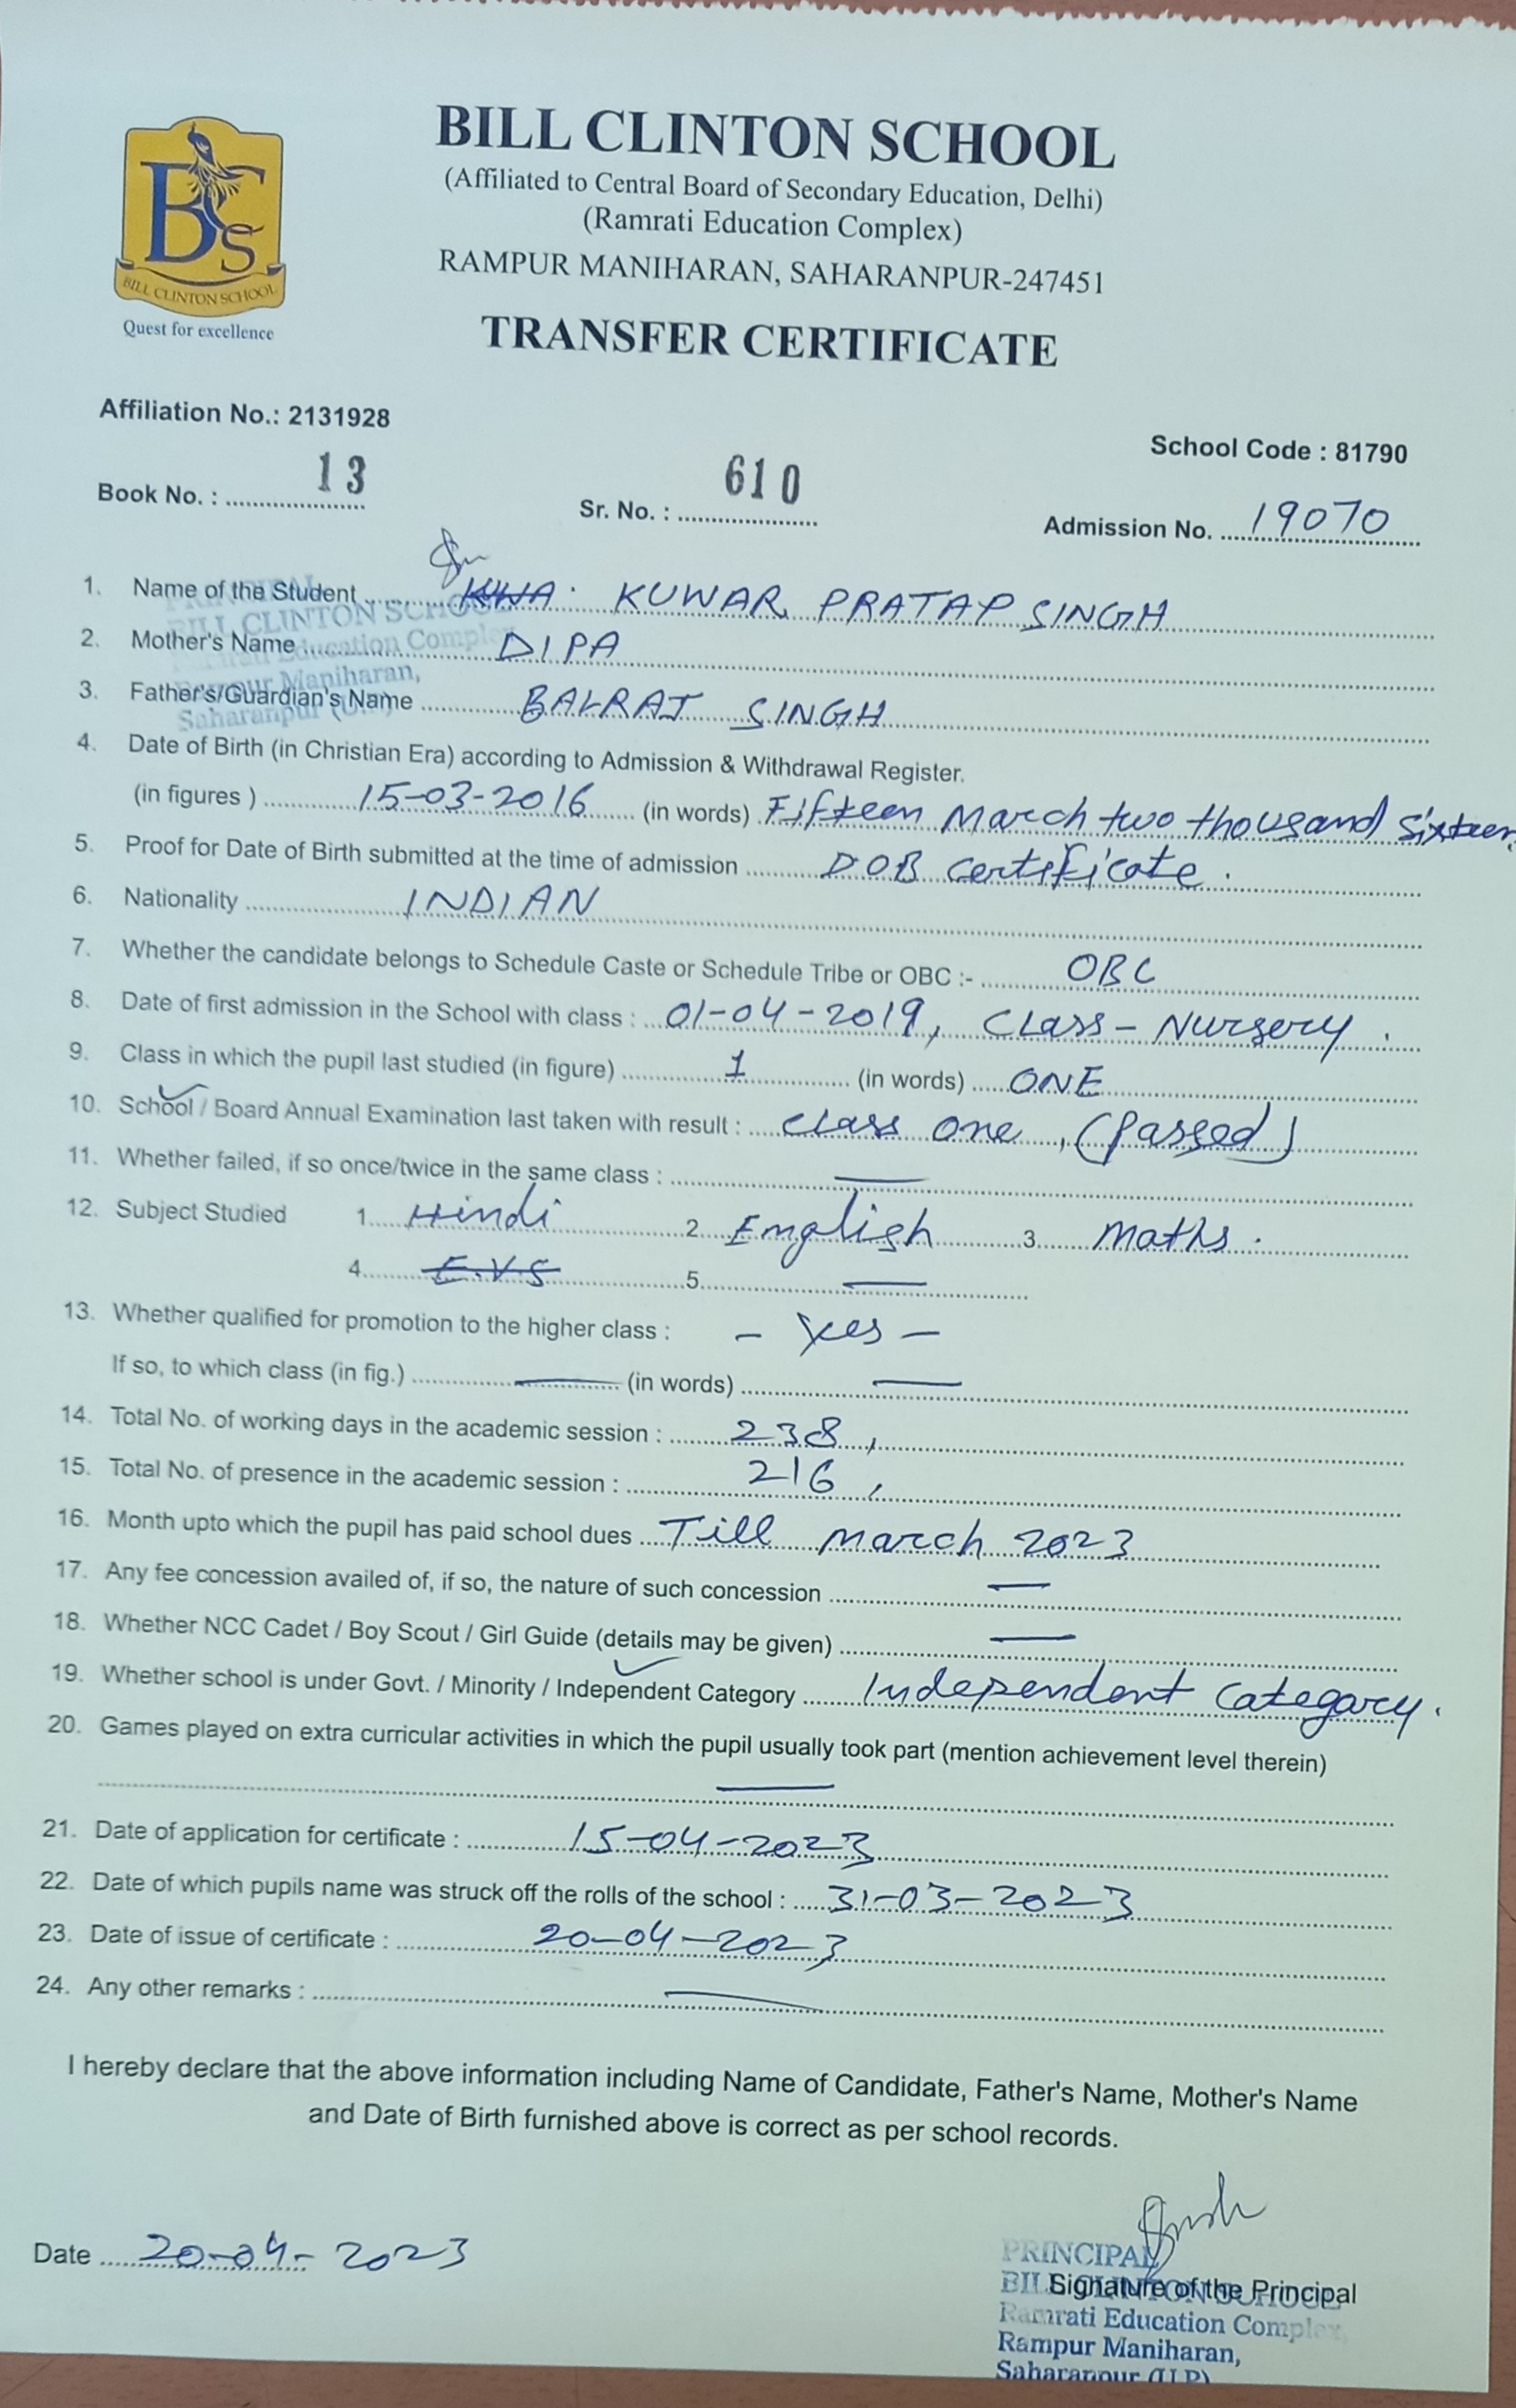 BILL CLINTON SCHOOL
(Affiliated to Central Board of Secondary Education, Delhi)
(Ramrati Education Complex)
RAMPUR MANIHARAN, SAHARANPUR-247451
BCS
BILL CLINTON SCHOOL
Quest for excellence
TRANSFER CERTIFICATE
Affiliation No.: 2131928
School Code : 81790
Book No. : 13 Sr. No. : 610 Admission No. 19070
1. Name of the Student KUWAR PRATAP SINGH
2. Mother's Name DIPA
3. Father's/Guardian's Name BALRAJ SINGH
4. Date of Birth (in Christian Era) according to Admission & Withdrawal Register.
(in figures ) 15-03-2016 (in words) Fifteen March two thousand sixteen.
5. Proof for Date of Birth submitted at the time of admission DOB certificate.
6. Nationality INDIAN
7. Whether the candidate belongs to Schedule Caste or Schedule Tribe or OBC :- OBC
8. Date of first admission in the School with class : 01-04-2019, Class- Nursery.
9. Class in which the pupil last studied (in figure) 1 (in words) ONE
10. School / Board Annual Examination last taken with result : class one, (Passed)
11. Whether failed, if so once/twice in the same class : —
12. Subject Studied 1. Hindi 2. English 3. Maths.
4. E.V.S 5. —
13. Whether qualified for promotion to the higher class : - Yes -
If so, to which class (in fig.) — (in words) —
14. Total No. of working days in the academic session : 238,
15. Total No. of presence in the academic session : 216,
16. Month upto which the pupil has paid school dues Till march 2023
17. Any fee concession availed of, if so, the nature of such concession —
18. Whether NCC Cadet / Boy Scout / Girl Guide (details may be given) —
19. Whether school is under Govt. / Minority / Independent Category Independent Categary.
20. Games played on extra curricular activities in which the pupil usually took part (mention achievement level therein)
—
21. Date of application for certificate : 15-04-2023
22. Date of which pupils name was struck off the rolls of the school : 31-03-2023
23. Date of issue of certificate : 20-04-2023
24. Any other remarks : —
I hereby declare that the above information including Name of Candidate, Father's Name, Mother's Name
and Date of Birth furnished above is correct as per school records.
Date 20-04-2023
PRINCIPAL
BILL CLINTON SCHOOL
Signature of the Principal
Ramrati Education Complex,
Rampur Maniharan,
Saharanpur (U.P)